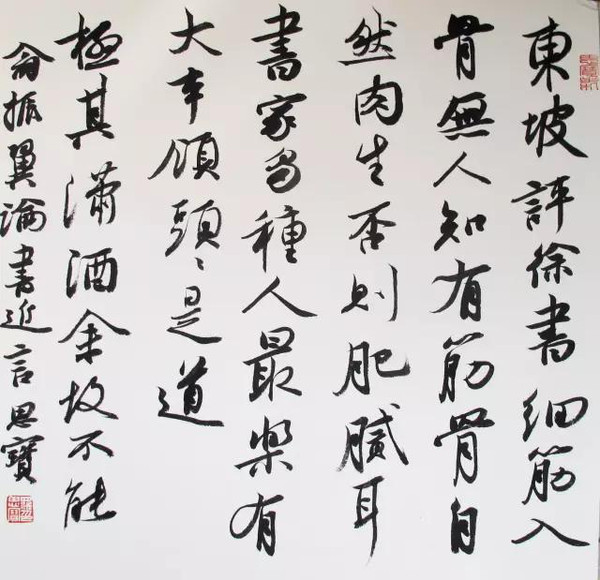 東坡評徐書細筋入
骨無人知有筋骨自
然肉生否則肥膩耳
書家種人最樂有
大本領頭々是道
極其瀟酒余故不能
翁振翼論書近言思寶